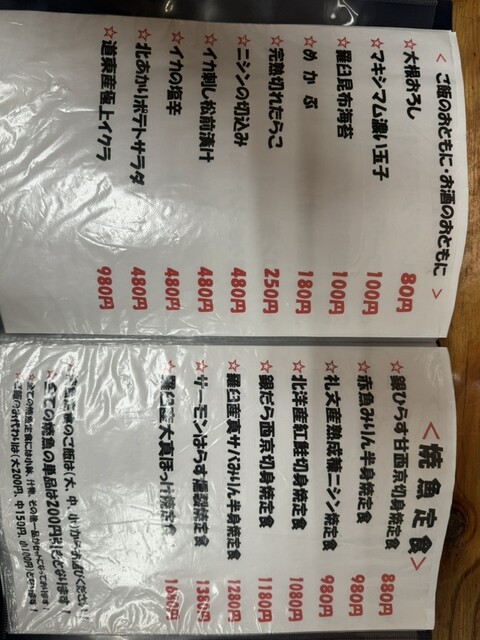 ＜ ご飯のおともに・お酒のおともに ＞
☆大根おろし 80円
☆マキシマム濃い玉子 100円
☆羅臼昆布海苔 100円
☆めかぶ 180円
☆完熟切れたらこ 250円
☆ニシンの切込み 480円
☆イカ刺し松前漬け 480円
☆イカの塩辛 480円
☆北あかりポテトサラダ 480円
☆道東産極上イクラ 980円
＜焼魚定食＞
☆銀ひらす甘西京切身焼定食 880円
☆赤魚みりん半身焼定食 980円
☆礼文産熟成糠ニシン焼定食 980円
☆北洋産紅鮭切身焼定食 1080円
☆銀だら西京切身焼定食 1180円
☆羅臼産真サバみりん半身焼定食 1280円
☆サーモンはらす燻製焼定食 1380円
☆羅臼産大真ほっけ焼定食
のご飯は(大、中、小)からお選びください！
☆全ての焼魚の単品は200円引きとなります！
☆全ての焼魚定食には小鉢、汁物、その他一品がセットになっております！
ご飯のお代わりは(大200円、中150円、小100円)となります！